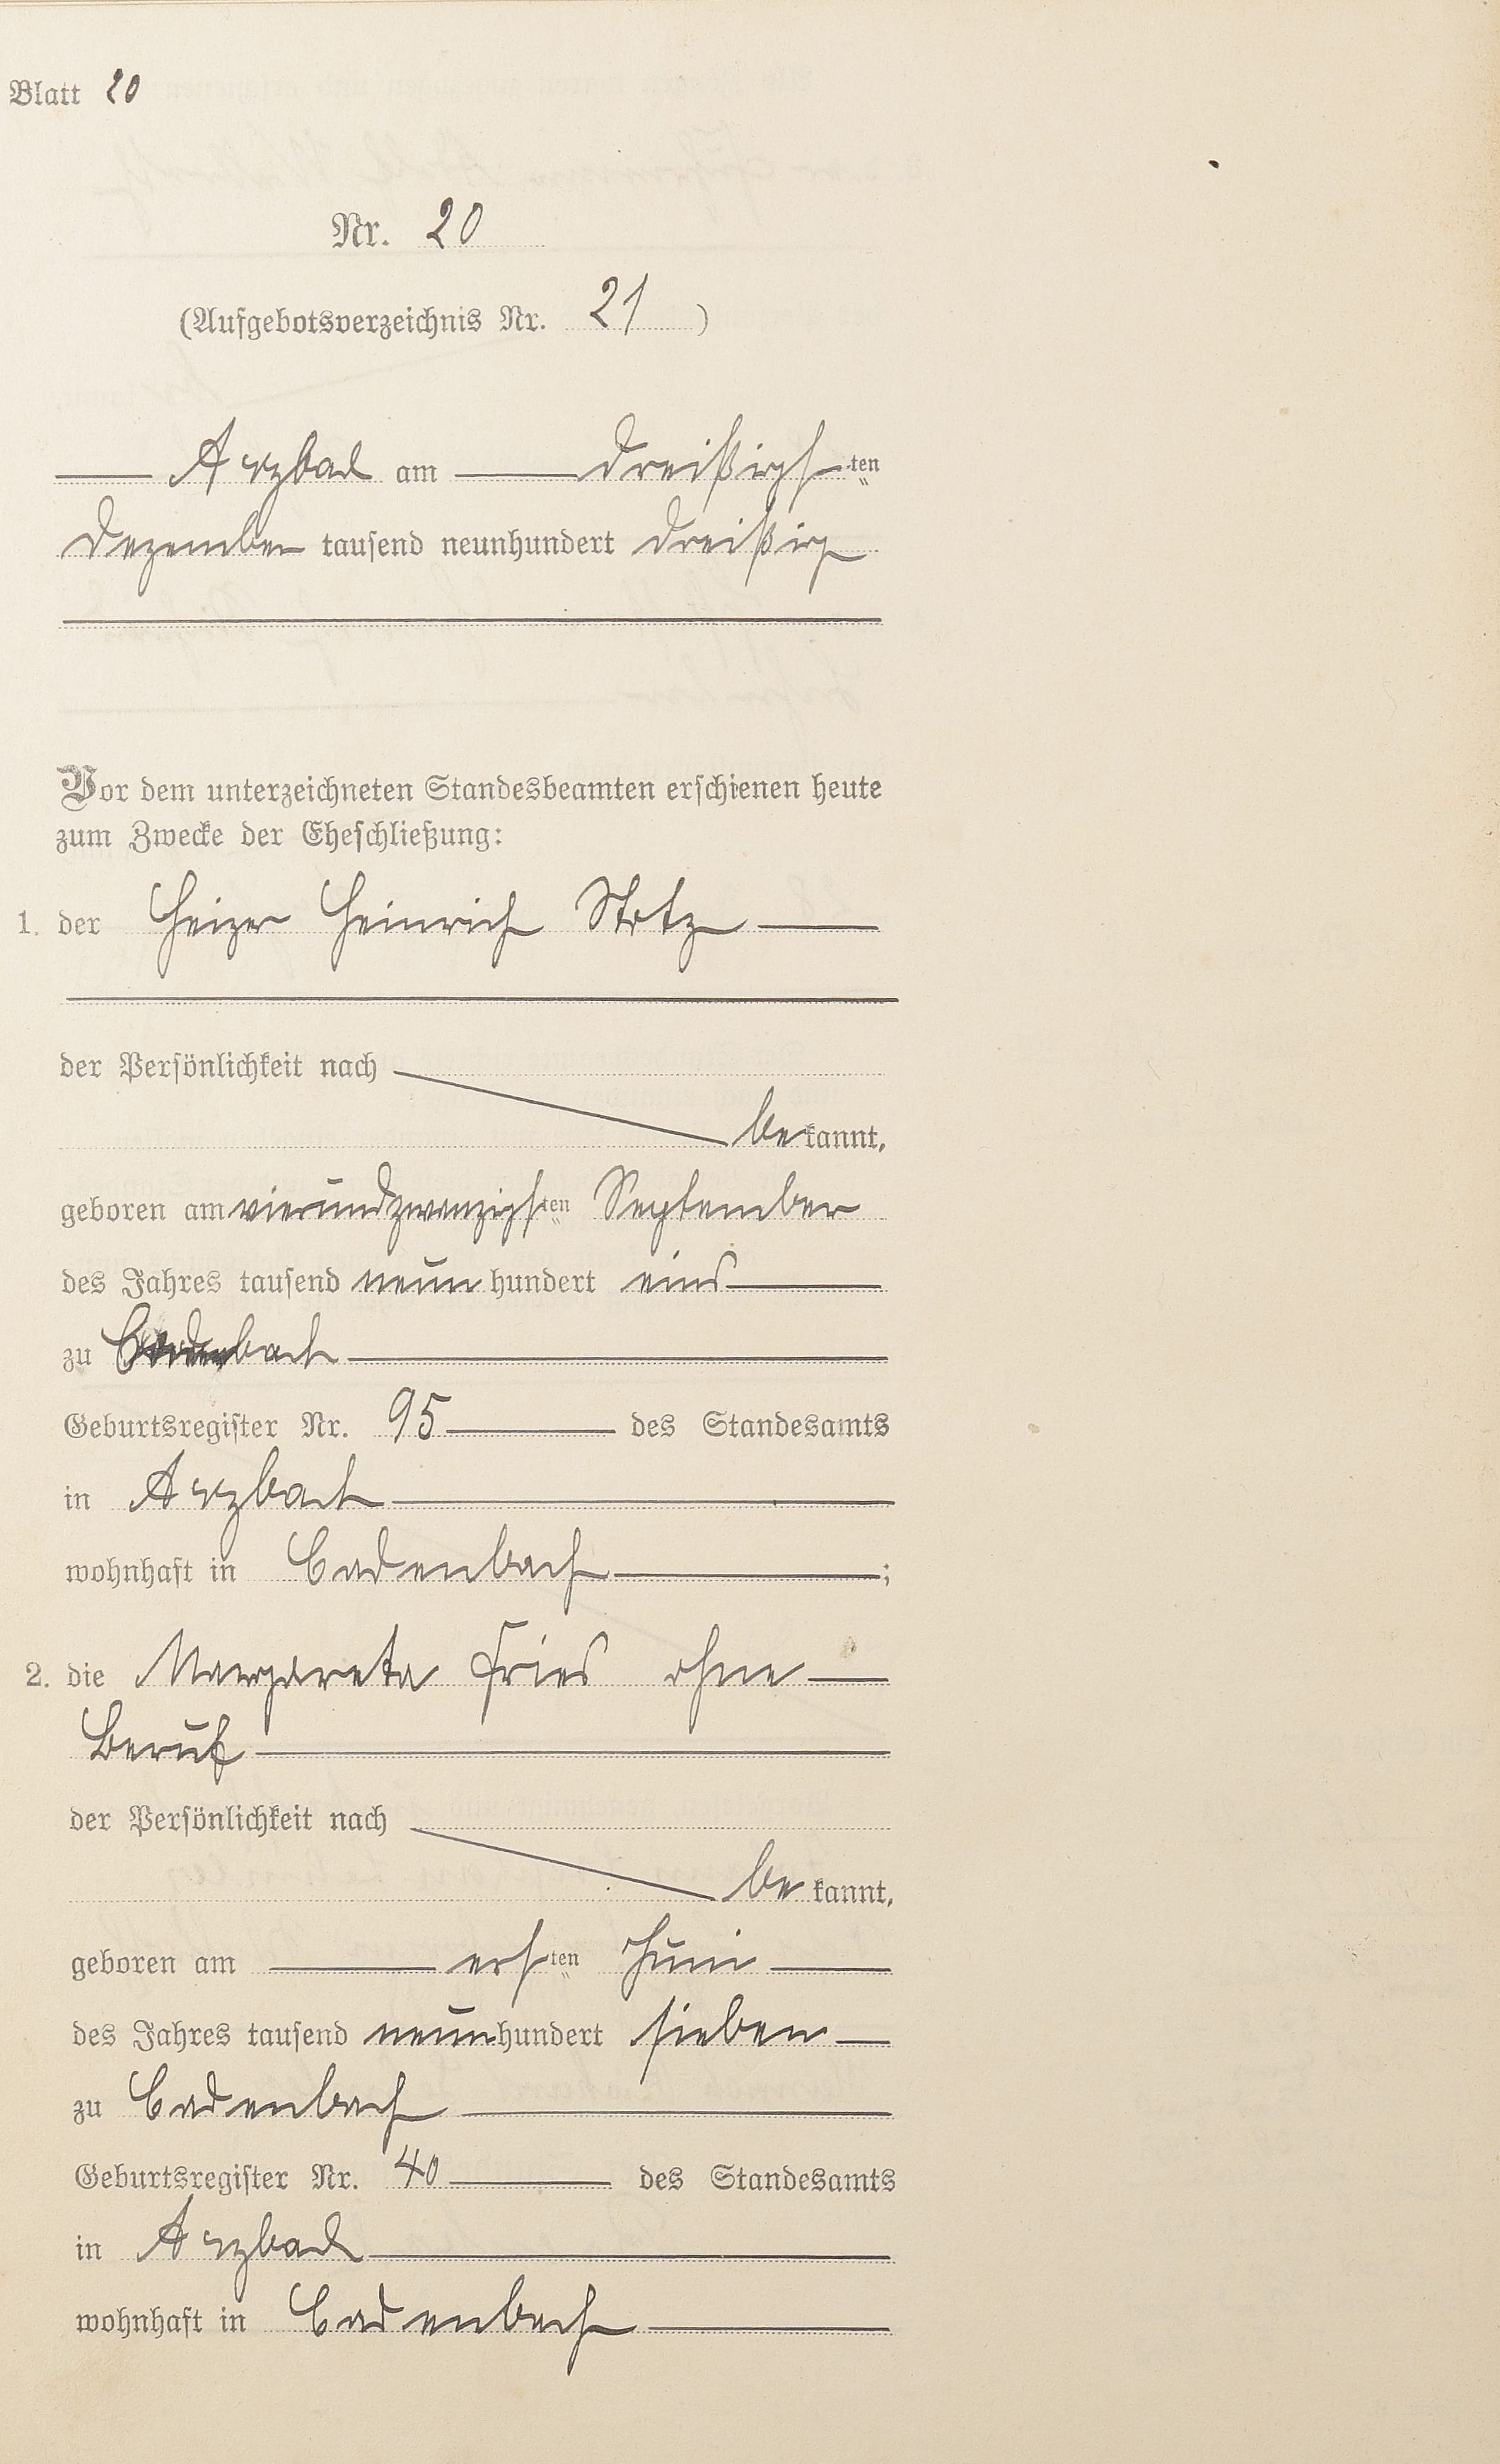 Blatt 20
Nr. 20
(Aufgebotsverzeichnis Nr. 21)
Arzbach am dreißigsten
Dezember tausend neunhundert dreißig
Vor dem unterzeichneten Standesbeamten erschienen heute
zum Zwecke der Eheschließung:
1. der Heizer Heinrich Stotz
der Persönlichkeit nach
bekannt,
geboren am vierundzwanzigsten September
des Jahres tausend neunhundert eins
zu Cadenbach
Geburtsregister Nr. 95 des Standesamts
in Arzbach
wohnhaft in Cadenbach;
2. die Margareta Fries ohne
Beruf
der Persönlichkeit nach
bekannt,
geboren am ersten Juni
des Jahres tausend neunhundert sieben
zu Cadenbach
Geburtsregister Nr. 40 des Standesamts
in Arzbach
wohnhaft in Cadenbach